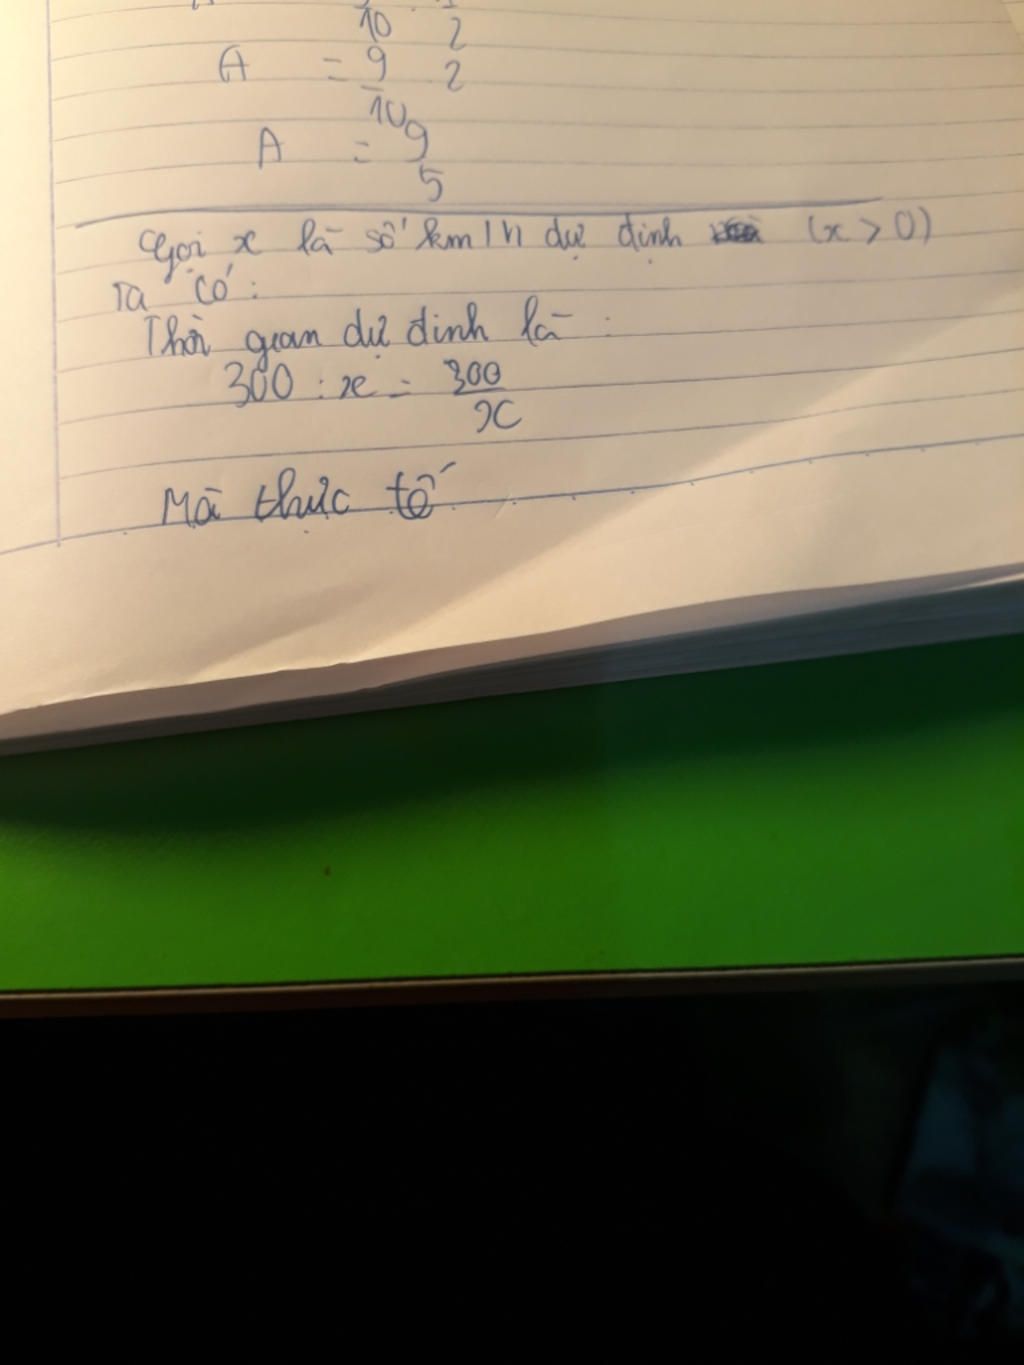 10 2
A = 9 2
10
A = 9
5
Gọi x là số km/h dự định (x > 0)
Ta có:
Thời gian dự định là:
300 : x = 300
x
Mà thực tế